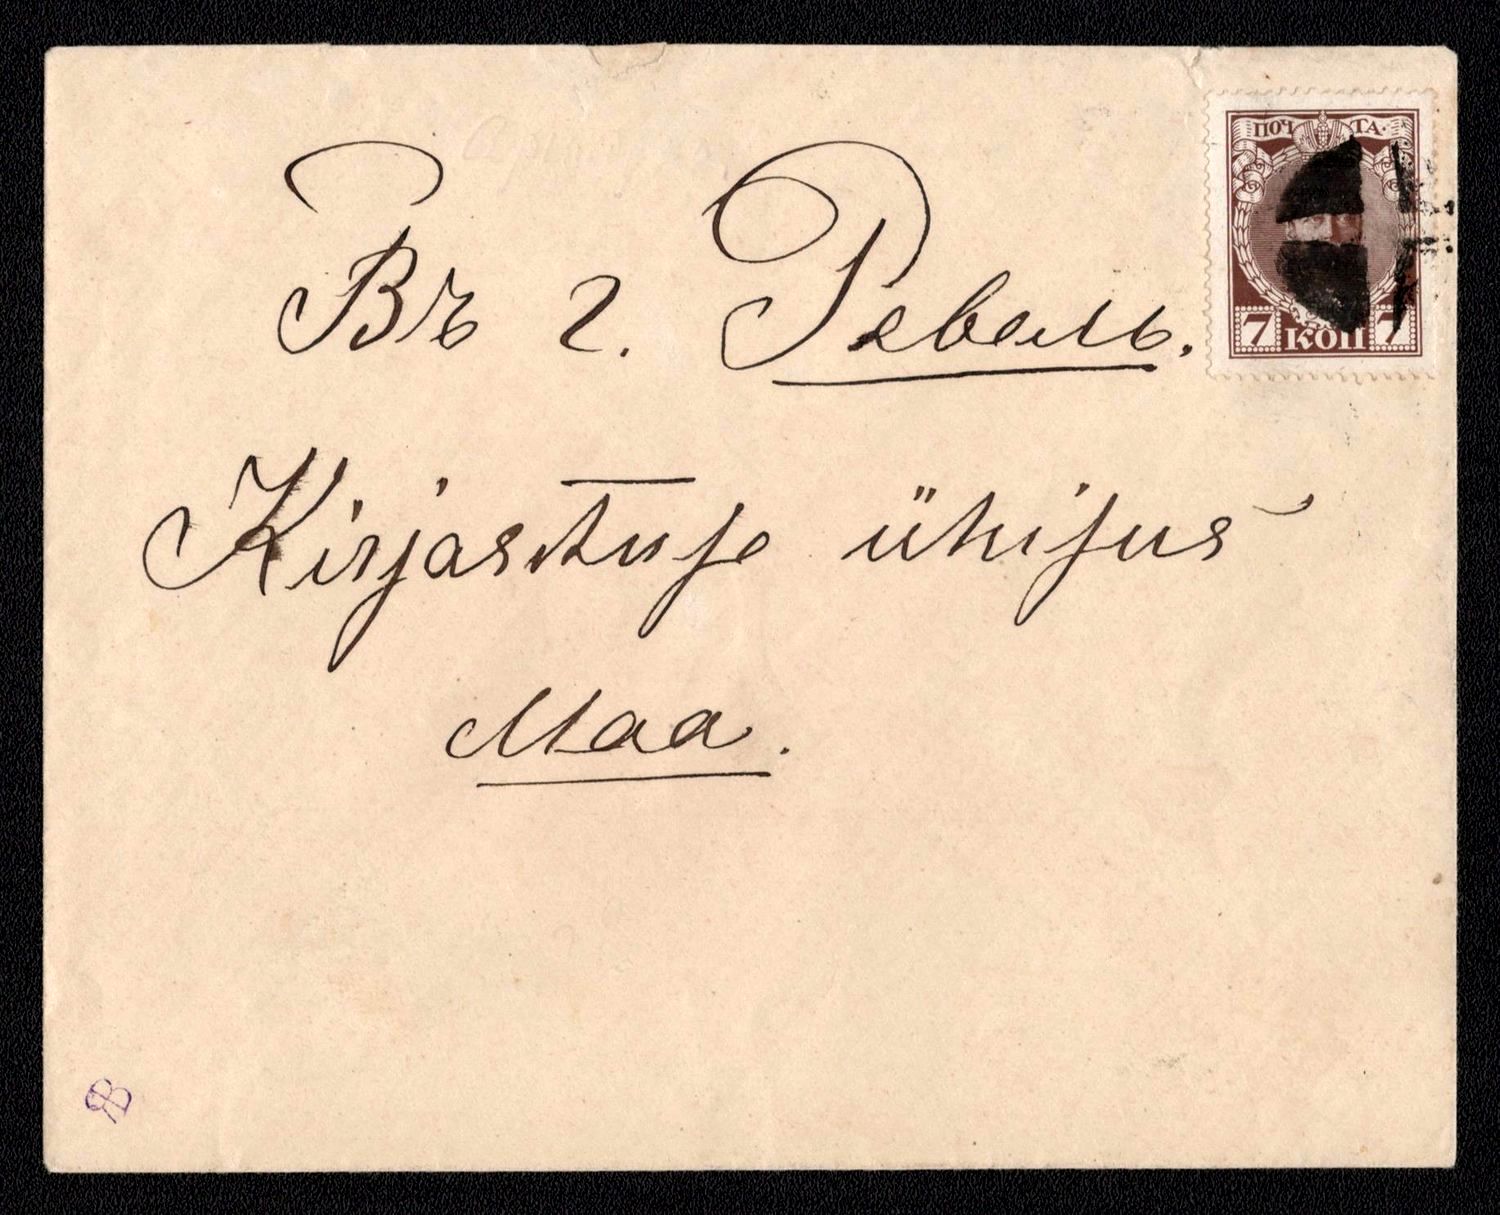 ПОЧТА
7 КОП 7
Въ г. Ревель.
Kirjastuse ühisus
Maa.